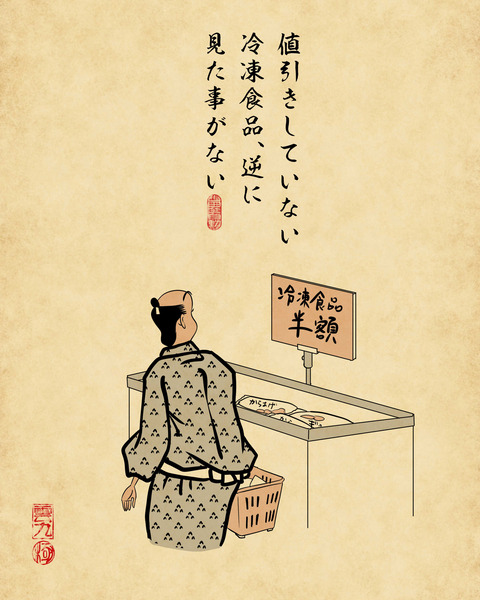 値引きしていない
冷凍食品、逆に
見た事がない
冷凍食品
半額
からあげ